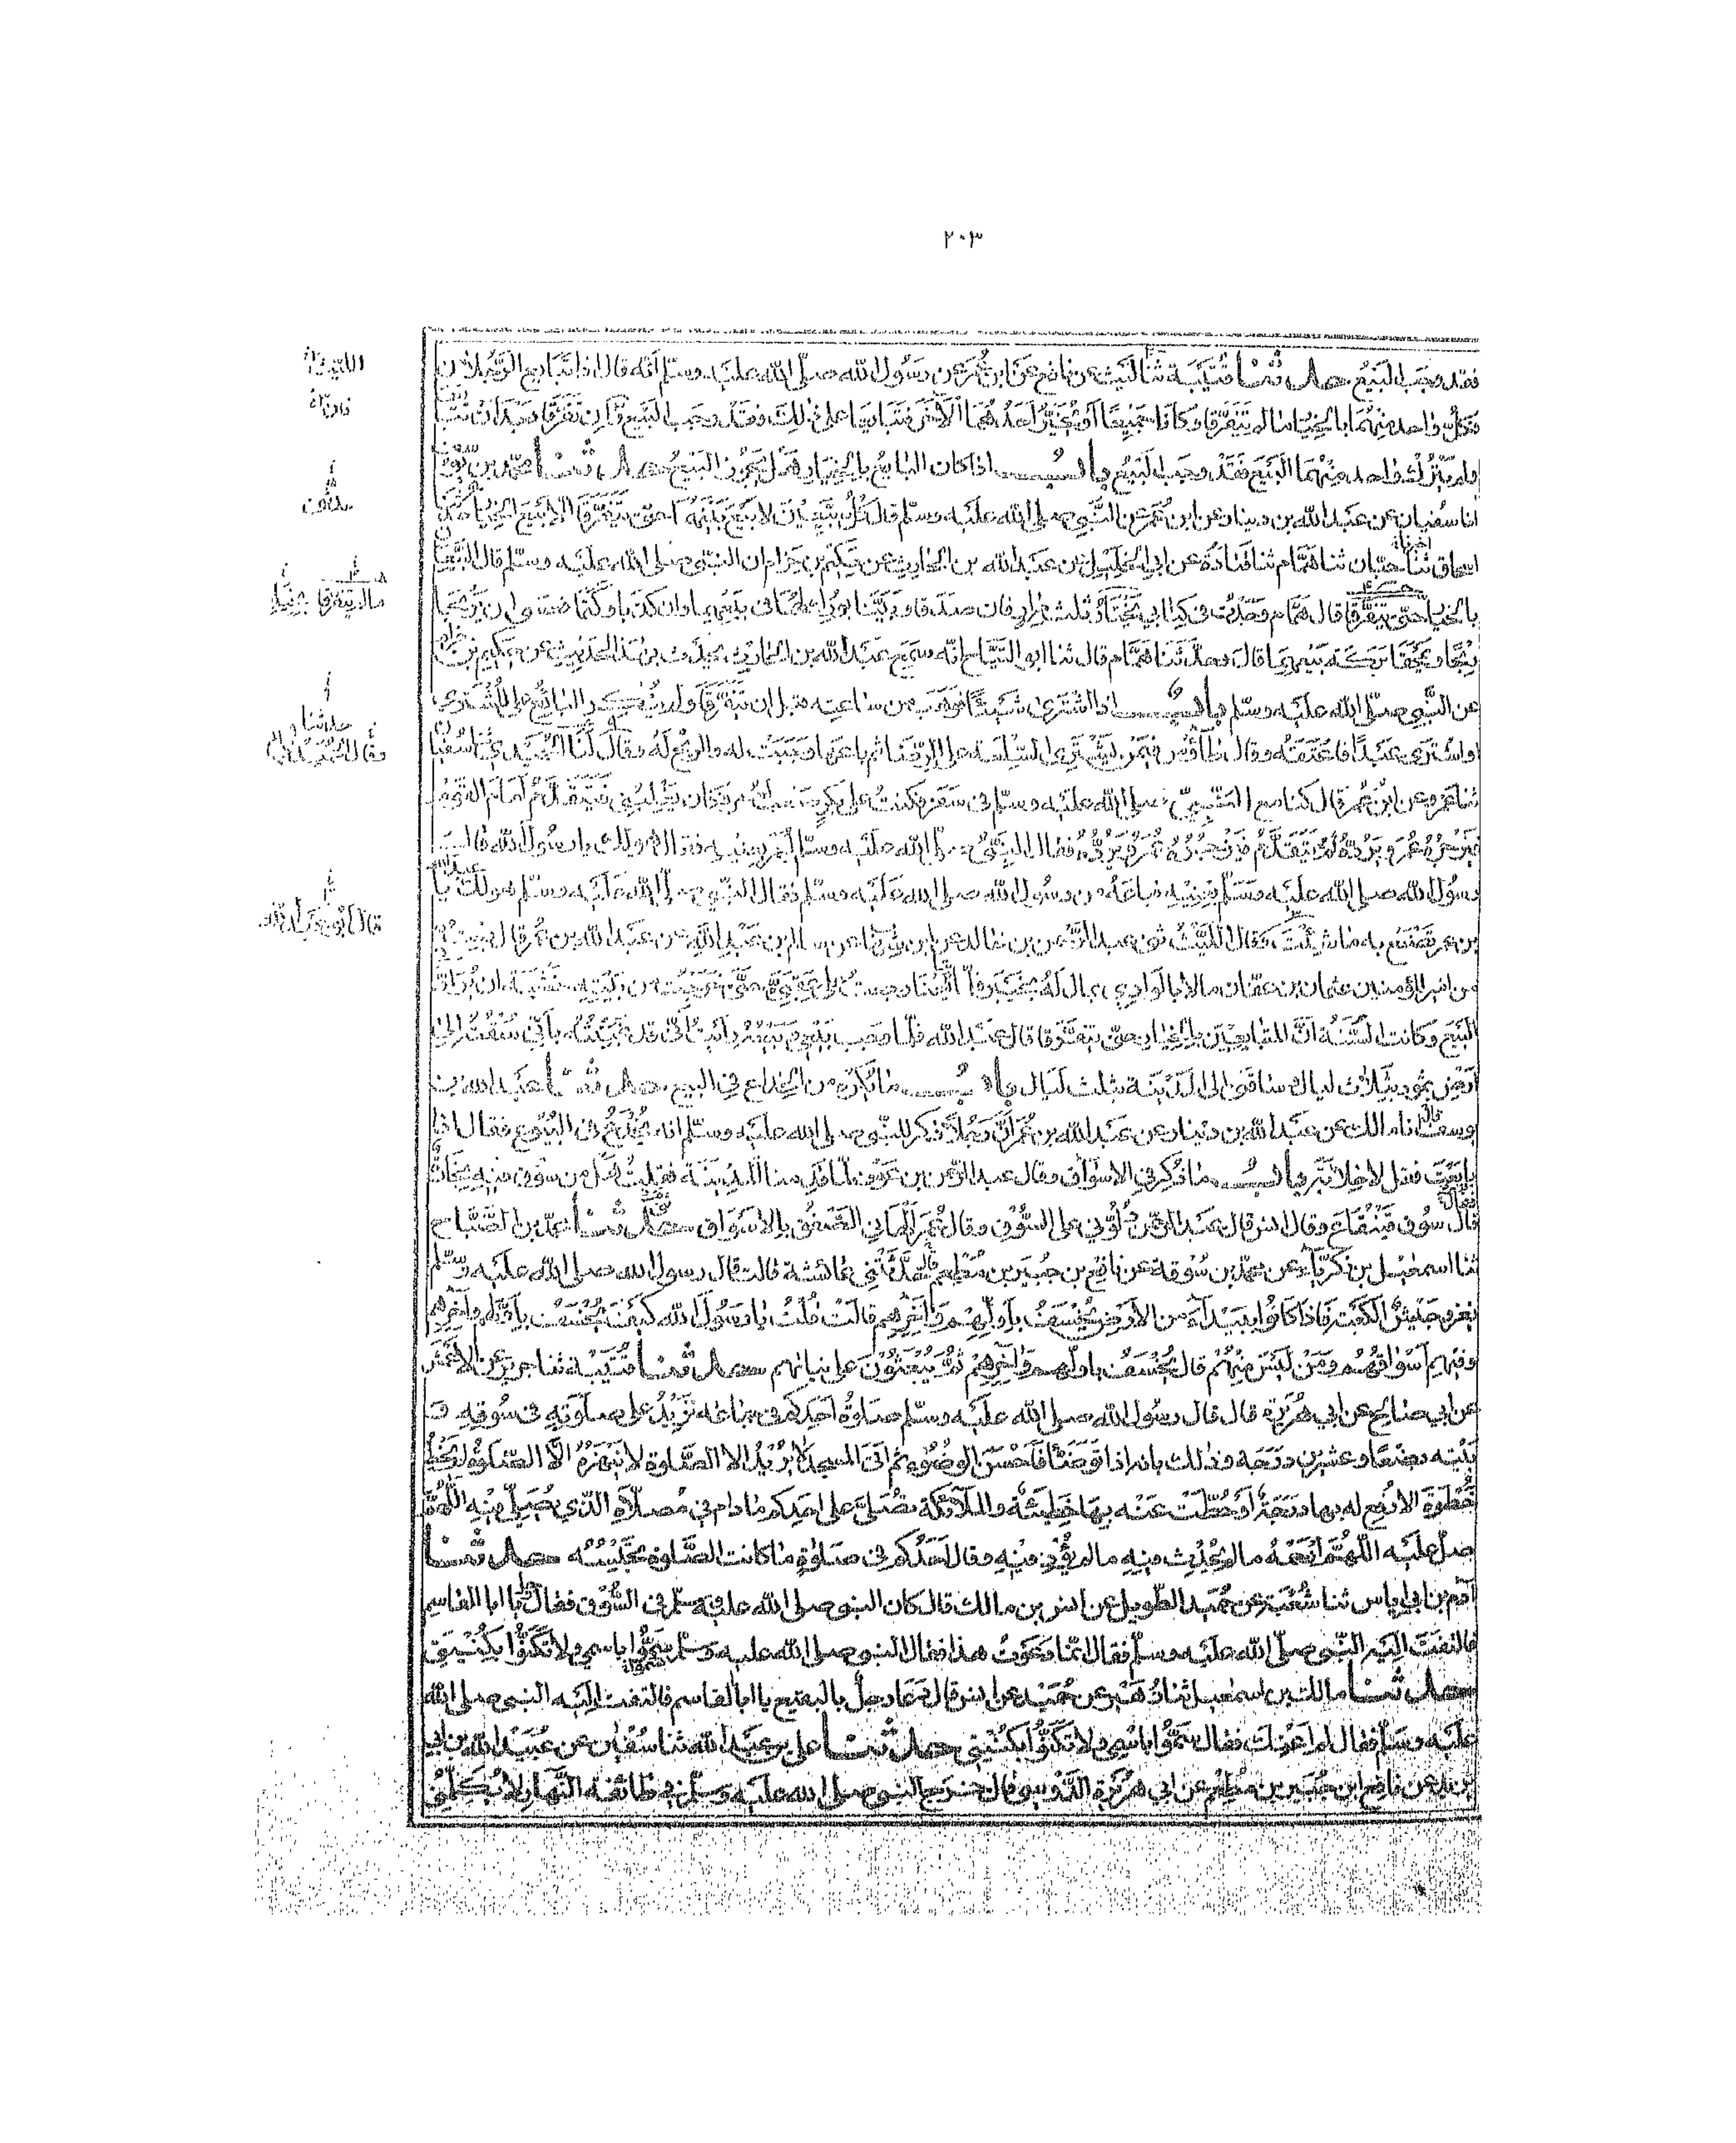 ٢٠٣
فقد وجب البيع حدثنا قتيبة ثنا ليث عن نافع عن ابن عمر عن رسول الله صلى الله عليه وسلم أنه قال اذا تبايع الرجلان
فكل واحد منهما بالخيار ما لم يتفرقا وكانا جميعا أو يخير أحدهما الآخر فتبايعا على ذلك فقد وجب البيع وإن تفرقا بعد أن
ولم يترك واحد منهما البيع فقد وجب البيع باب اذا كان البائع بالخيار هل يجوز البيع حدثنا محمد بن يوسف
انا سفيان عن عبد الله بن دينار عن ابن عمر عن النبي صلى الله عليه وسلم قال كل بيعين لا بيع بينهما حتى يتفرقا الا بيع الخيار
اسحاق ثنا حبان ثنا همام ثنا قتادة عن ابي الخليل عن عبد الله بن الحارث عن حكيم بن حزام ان النبي صلى الله عليه وسلم قال البيعان
بالخيار حتى يتفرقا قال همام وجدت في كتابي يختار ثلث مرار فان صدقا وبينا بورك لهما في بيعهما وان كذبا وكتما فعسى ان يربحا
ربحا ويمحقا بركة بيعهما قال وحدثنا همام قال ثنا ابو التياح انه سمع عبد الله بن الحارث يحدث بهذا الحديث عن حكيم بن حزام
عن النبي صلى الله عليه وسلم باب اذا اشترى شيئا فوهب من ساعته قبل ان يتفرقا ولم ينكر البائع على المشترى
او اشترى عبدا فاعتقه وقال طاؤس فيمن يشترى السلعة على الرضا ثم باعها وجبت له والربح له وقال لنا الحميدي ثنا سفيان
ثنا عمرو عن ابن عمر قال كنا مع النبي صلى الله عليه وسلم في سفر فكنت على بكر صعب لعمر فكان يغلبني فيتقدم أمام القوم
فيزجره عمر ويرده ثم يتقدم فيزجره عمر ويرده فقال النبي صلى الله عليه وسلم لعمر بعنيه فقال هو لك يا رسول الله قال
رسول الله صلى الله عليه وسلم بعنيه فباعه من رسول الله صلى الله عليه وسلم فقال النبي صلى الله عليه وسلم هو لك يا عبد الله
بن عمر تصنع به ما شئت وقال الليث ثني عبد الرحمن بن خالد عن ابن شهاب عن سالم بن عبد الله عن عبد الله بن عمر قال بعت
من امير المؤمنين عثمان بن عفان مالا بالوادي بمال له بخيبر فلما تبايعنا رجعت على عقبي حتى خرجت من بيته خشية ان يرادني
البيع وكانت السنة أن المتبايعين بالخيار حتى يتفرقا قال عبد الله فلما وجب بيعي وبيعه رأيت أني قد غبنته بأني سقته إلى
أرض ثمود بثلاث ليال وساقني الى المدينة بثلث ليال باب ما يكره من الخداع في البيع حدثنا عبد الله بن
يوسف انا مالك عن عبد الله بن دينار عن عبد الله بن عمر أن رجلا ذكر للنبي صلى الله عليه وسلم انه يخدع في البيوع فقال اذا
بايعت فقل لا خلابة باب ما ذكر في الاسواق وقال عبد الرحمن بن عوف لما قدمنا المدينة فقلت هل من سوق فيه تجارة
قال سوق قينقاع وقال انس قال عبد الرحمن دلوني على السوق وقال عمر ألهاني الصفق بالاسواق حدثنا محمد بن الصباح
ثنا اسمعيل بن زكرياء عن محمد بن سوقة عن نافع بن جبير بن مطعم قال حدثتني عائشة قالت قال رسول الله صلى الله عليه وسلم
يغزو جيش الكعبة فاذا كانوا ببيداء من الأرض يخسف بأولهم وآخرهم قالت قلت يا رسول الله كيف يخسف بأولهم وآخرهم
وفيهم أسواقهم ومن ليس منهم قال يخسف باولهم وآخرهم ثم يبعثون على نياتهم حدثنا قتيبة ثنا جرير عن الاعمش
عن ابي صالح عن ابي هريرة قال قال رسول الله صلى الله عليه وسلم صلوة احدكم في جماعة تزيد على صلوته في سوقه و
بيته بضعا وعشرين درجة وذلك بانه اذا توضأ فأحسن الوضوء ثم اتى المسجد لا يريد الا الصلوة لا ينهزه الا الصلوة لم يخط
خطوة الا رفع له بها درجة أو حطت عنه بها خطيئة والملائكة تصلى على احدكم ما دام في مصلاه الذي يصلي فيه اللهم
صل عليه اللهم ارحمه ما لم يحدث فيه ما لم يؤذ فيه وقال أحدكم في صلوة ما كانت الصلوة تحبسه حدثنا
آدم بن ابي اياس ثنا شعبة عن حميد الطويل عن انس بن مالك قال كان النبي صلى الله عليه وسلم في السوق فقال رجل يا ابا القاسم
فالتفت اليه النبي صلى الله عليه وسلم فقال انما دعوت هذا فقال النبي صلى الله عليه وسلم سموا باسمي ولا تكنوا بكنيتي
حدثنا مالك بن اسمعيل ثنا زهير عن حميد عن انس قال دعا رجل بالبقيع يا ابا القاسم فالتفت اليه النبي صلى الله
عليه وسلم فقال لم اعنك فقال سموا باسمي ولا تكنوا بكنيتي حدثنا علي بن عبد الله ثنا سفيان عن عبيد الله بن ابي
يزيد عن نافع ابن جبير بن مطعم عن ابي هريرة الدوسي قال خرج النبي صلى الله عليه وسلم في طائفة النهار لا يكلمني
الليث
ما لم يتفرقا
حدثنا
وقال الحميدي
قال أبو عبد الله